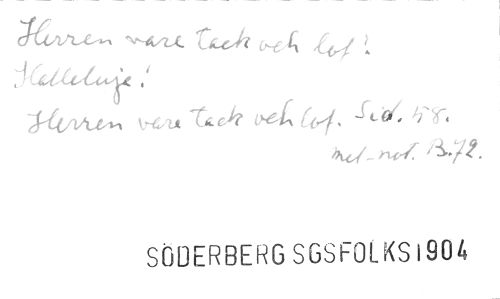 Herren vare tack och lof!
Halleluja!
Herren vare tack och lof. Sid. 58.
mel-not. B.72.
SÖDERBERG SGSFOLKS1904